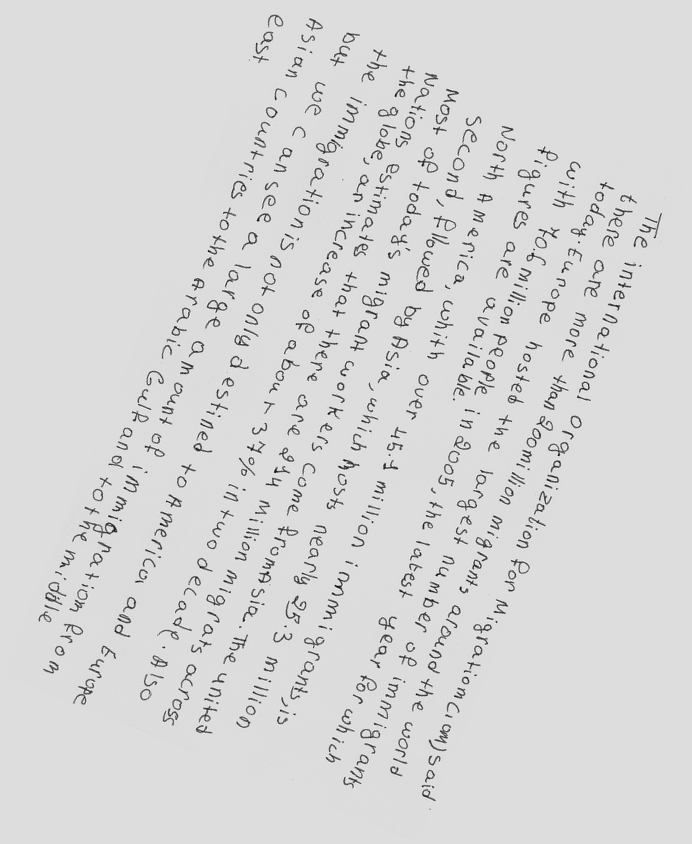 The international organization for Migration(iom) said
there are more than 200 million migrants around the world
today. Europe hosted the largest number of immigrants
with 706 million people in 2005, the latest year for which
figures are available.
North America, which over 45.1 million immigrants, is
Second, fllowed by Asia, which hosts nearly 25.3 million
Most of today's migrant workers come from Asia. The united
Nations estimates that there are 214 Million migrats across
the globe, an increase of about 37% in two decade. Also
the immigration is not only destined to America and Europe
but we can see a large amount of immigration from
Asian countries to the Arabic Gulf and to the middle
east